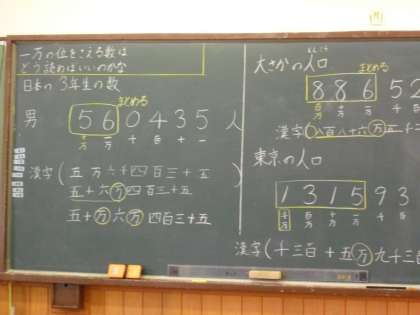 一万の位をこえる数は
どう読めばいいのかな
日本の3年生の数
まとめる
男 560435人
十万 一万 千 百 十 一
漢字(五万六千四百三十五
五十六万四百三十五
五十万六万四百三十五
大さかの人口
まとめる
88652
百万 十万 一万 千
漢字(八百八十六万五
東京の人口
131593
千万 百万 十万 一万 千 百
漢字(千三百十五万九千三百